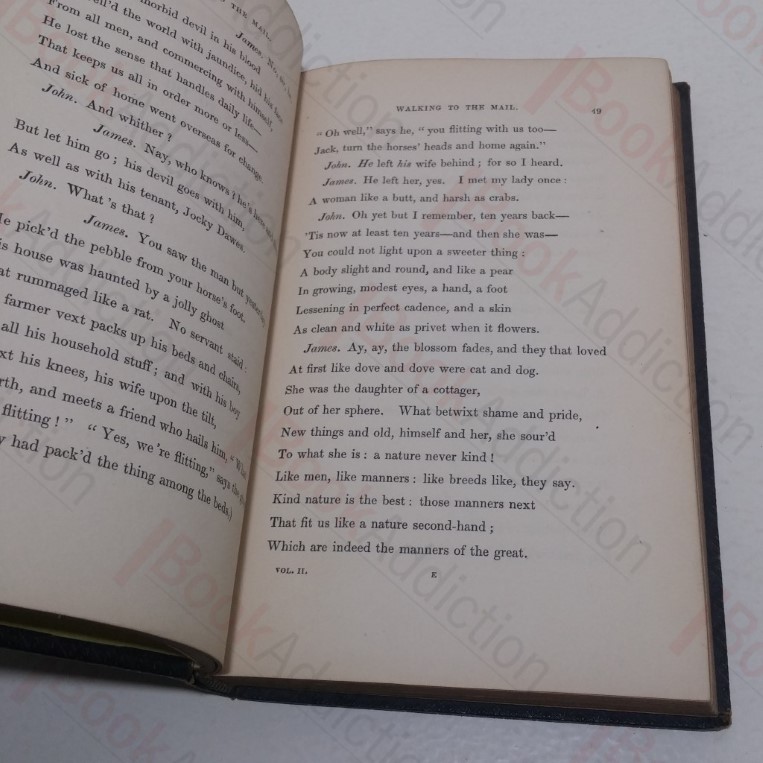 TO THE MAIL.
morbid devil in his blood
James. No,
the world with jaundice, hid his
From all men, and commercing with himself,
He lost the sense that handles daily life—
That keeps us all in order more or less—
And sick of home went overseas for change.
John. And whither?
James. Nay, who knows? he's
But let him go; his devil goes with him,
As well as with his tenant, Jocky Dawes.
John. What's that?
James. You saw the man but
He pick'd the pebble from your horse's foot.
house was haunted by a jolly ghost
rummaged like a rat. No servant staid:
farmer vext packs up his beds and chairs,
all his household stuff; and with his boy
his knees, his wife upon the tilt,
and meets a friend who hails him,
flitting!" "Yes, we're flitting," says the
had pack'd the thing among the beds,)
WALKING TO THE MAIL. 49
"Oh well," says he, "you flitting with us too—
Jack, turn the horses' heads and home again."
John. He left his wife behind; for so I heard.
James. He left her, yes. I met my lady once:
A woman like a butt, and harsh as crabs.
John. Oh yet but I remember, ten years back—
'Tis now at least ten years—and then she was—
You could not light upon a sweeter thing:
A body slight and round, and like a pear
In growing, modest eyes, a hand, a foot
Lessening in perfect cadence, and a skin
As clean and white as privet when it flowers.
James. Ay, ay, the blossom fades, and they that loved
At first like dove and dove were cat and dog.
She was the daughter of a cottager,
Out of her sphere. What betwixt shame and pride,
New things and old, himself and her, she sour'd
To what she is: a nature never kind!
Like men, like manners: like breeds like, they say.
Kind nature is the best: those manners next
That fit us like a nature second-hand;
Which are indeed the manners of the great.
VOL. II. E
BookAddiction